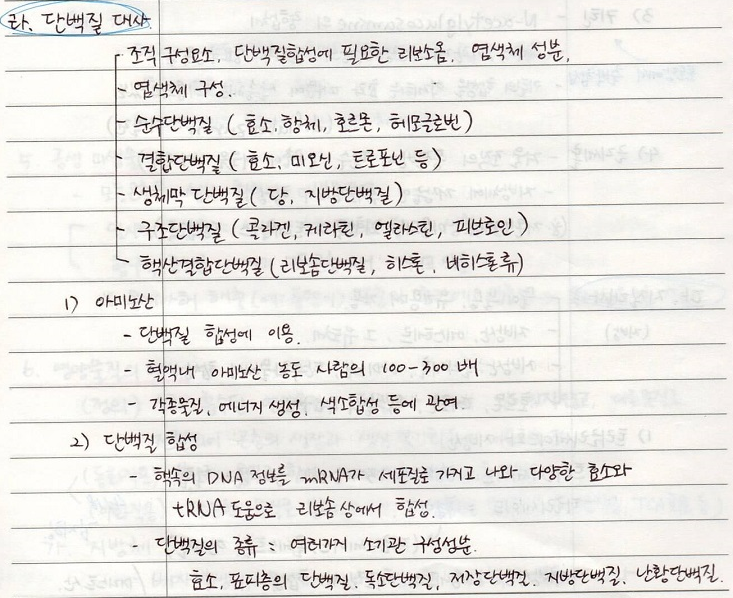 라. 단백질 대사.
- 조직 구성요소, 단백질합성에 필요한 리보소옴, 염색체 성분.
- 염색체 구성.
- 순수단백질 (효소, 항체, 호르몬, 헤모글로빈)
- 결합단백질 (효소, 미오신, 트로포닌 등)
- 생체막 단백질 (당, 지방단백질)
- 구조단백질 (콜라겐, 케라틴, 엘라스틴, 피브로인)
핵산결합단백질 (리보솜단백질, 히스톤, 비히스톤류)
1) 아미노산
- 단백질 합성에 이용.
- 혈액내 아미노산 농도 사람의 100-300 배
- 각종물질, 에너지 생성, 색소합성 등에 관여.
2) 단백질 합성
- 핵속의 DNA 정보를 mRNA가 세포질로 가지고 나와 다양한 효소와
tRNA 도움으로 리보솜 상에서 합성.
- 단백질의 종류 = 여러가지 소기관 구성성분.
효소, 표피층의 단백질, 독소단백질, 저장단백질, 지방단백질, 난황단백질.